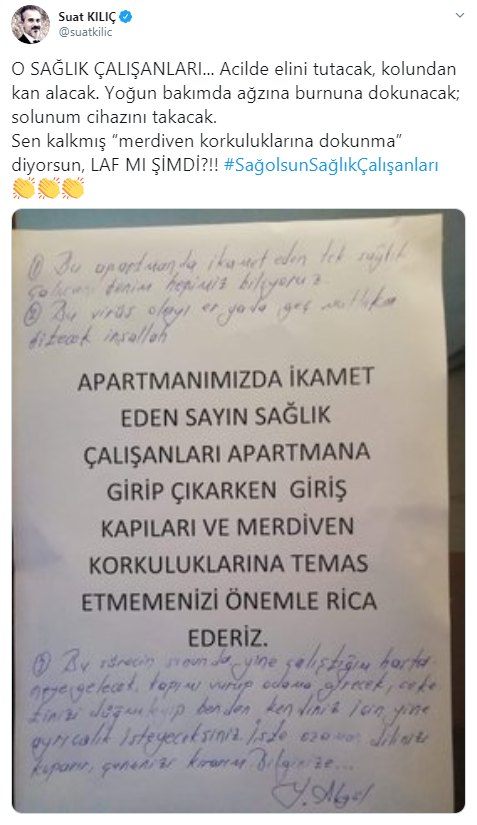 Suat KILIÇ
@suatkilic
O SAĞLIK ÇALIŞANLARI... Acilde elini tutacak, kolundan
kan alacak. Yoğun bakımda ağzına burnuna dokunacak;
solunum cihazını takacak.
Sen kalkmış “merdiven korkuluklarına dokunma”
diyorsun, LAF MI ŞİMDİ?!! #SağolsunSağlıkÇalışanları
👏👏👏
① Bu apartmanda ikamet eden tek sağlık
çalışanı benim hepimiz biliyoruz.
② Bu virüs olayı er yada geç mutlaka
bitecek inşallah
APARTMANIMIZDA İKAMET
EDEN SAYIN SAĞLIK
ÇALIŞANLARI APARTMANA
GİRİP ÇIKARKEN GİRİŞ
KAPILARI VE MERDİVEN
KORKULUKLARINA TEMAS
ETMEMENİZİ ÖNEMLE RİCA
EDERİZ.
③ Bu sürecin sonunda, yine çalıştığım hasta
neye gelecek, kapımı vurup odama girecek, ceke
tinizi düğmeleyip benden kendiniz için yine
ayrıcalık isteyeceksiniz. İşte o zaman dilinizi
koparır, çenenizi kırarım Bilginize...
Y. Akgül